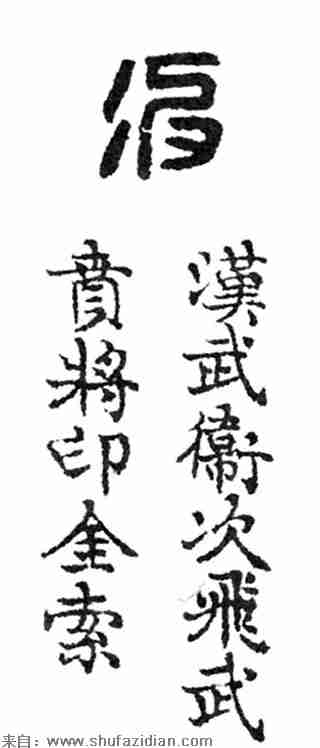 漢武衛次飛武
賁將印金索
来自：www.shufazidian.com